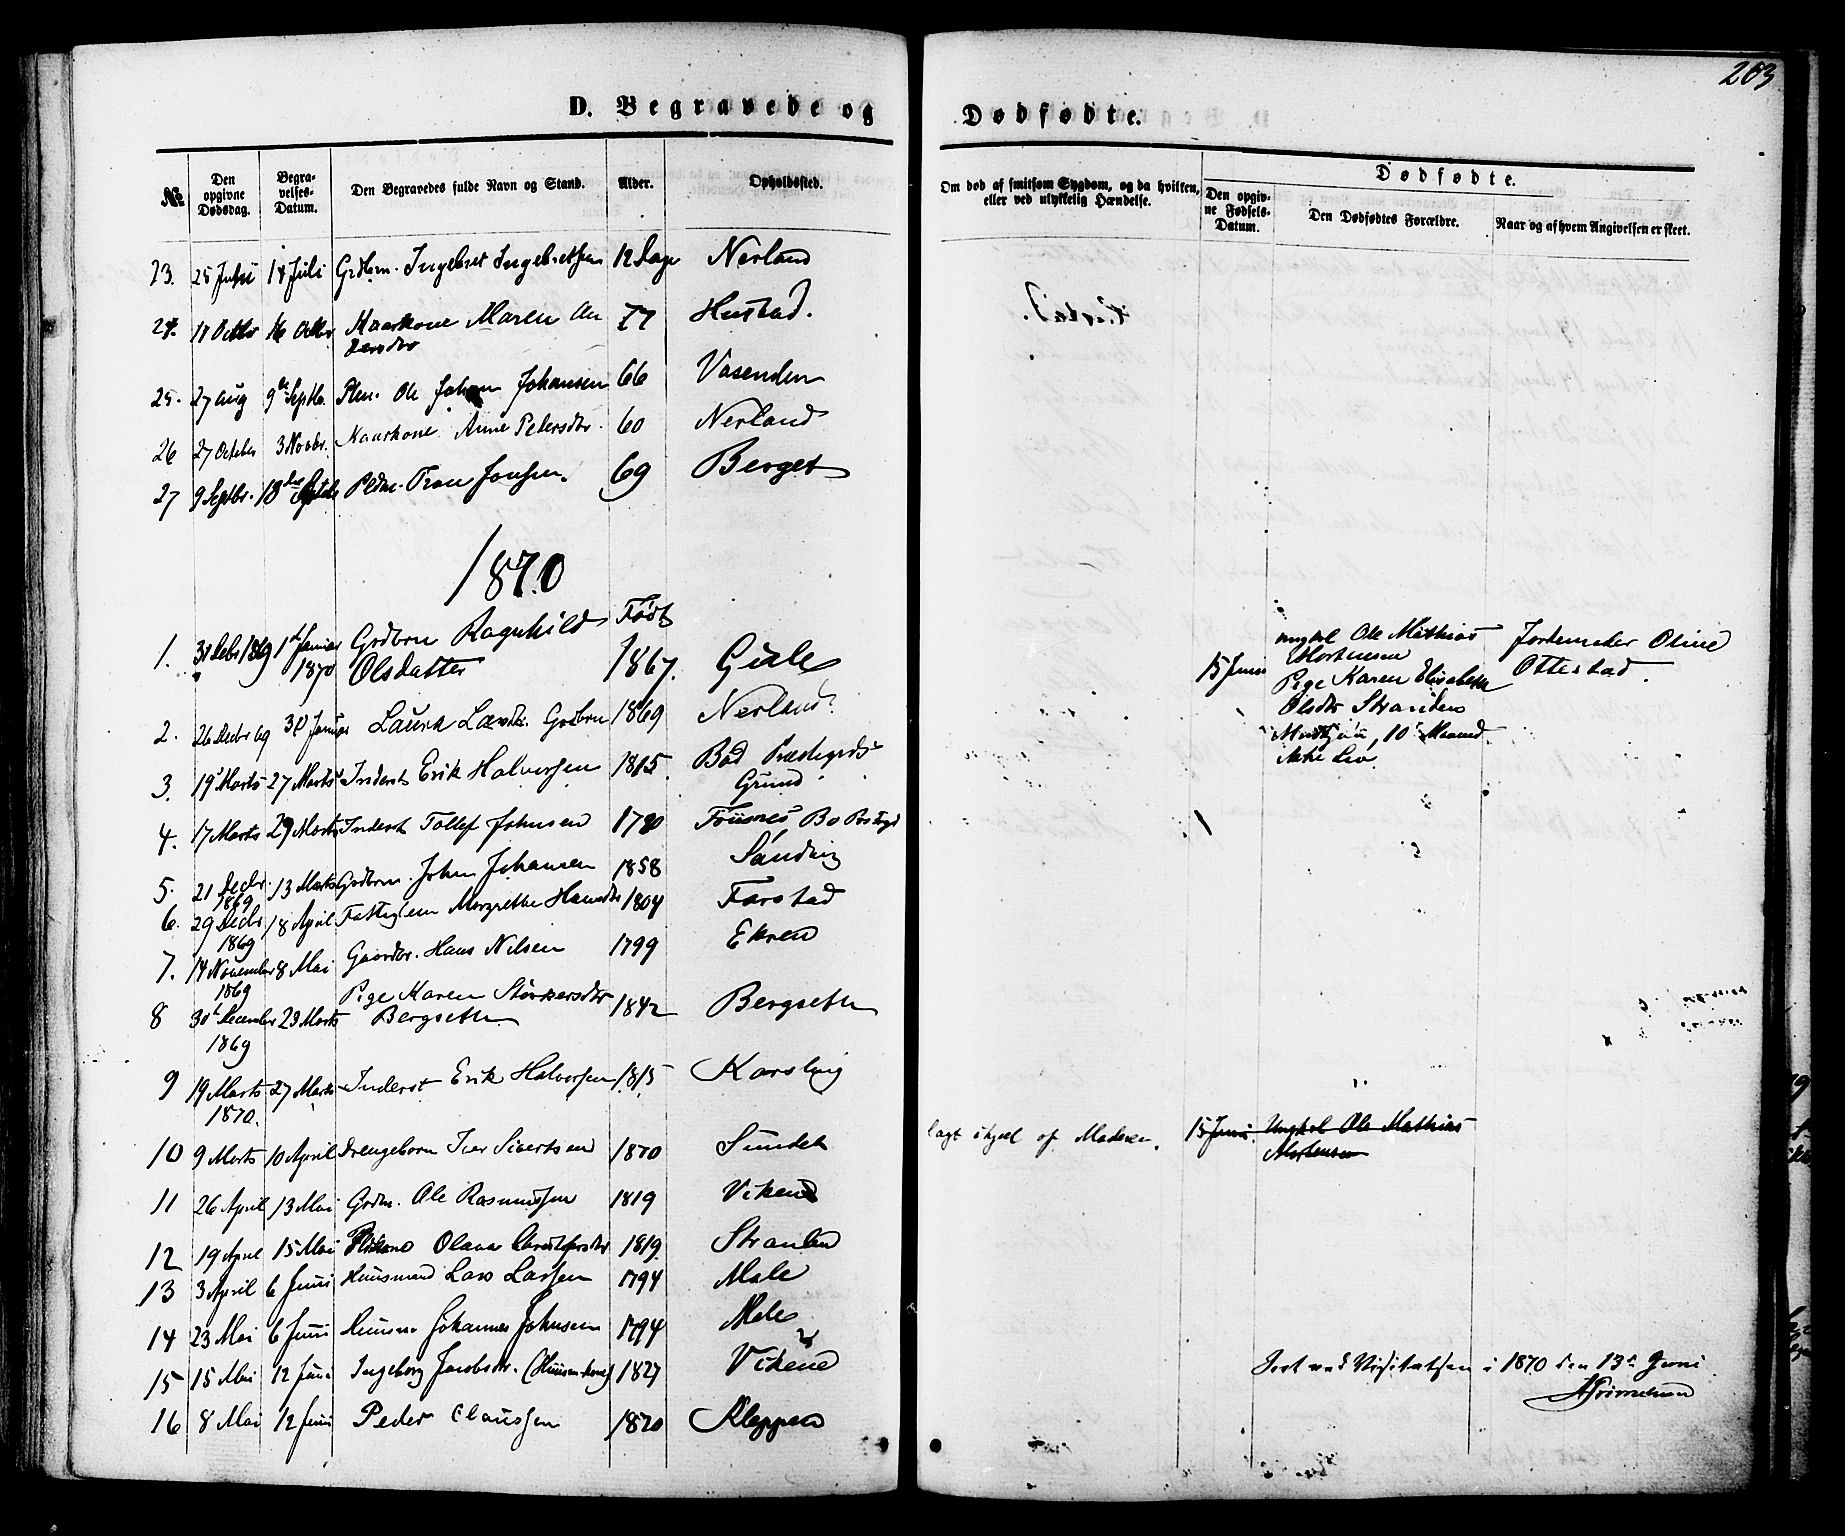 203
D. Begravede og Dødfødte.
№ Den opgivne Dødsdag. Begravelses-Datum. Den Begravedes fulde Navn og Stand. Alder. Opholdssted. Om død af smitsom Sygdom, og da hvilken, eller ved ulykkelig Hændelse. Dødfødte.
Den opgivne Fødsels-Datum. Den Dødfødtes Forældre. Naar og af hvem Angivelsen er skeet.
23. 25 Juni 14 Juli Ingebret Ingebretsen 12 Dage Nerland
24. 11 Octbr 16 Octbr Kaarkone Maren An 77 Hustad.
dersdtr
25. 27 Aug 9de Septb. Ole Johan Johansen 66 Vasenden
26 27 October 3 Novbr. Kaarkone Anne Petersdtr. 60 Nerland
27 9 Septbr. 18de Pldm. Tron Jonsen. 69 Berget
1870
1. 31 Decbr 1869 1ste Januar 1870 Grdbrn Ragnhild Olsdatter Født 1867. Gule
2. 26 Decbr 69 30 Januar Laura Larsdtr. Grdbrn 1869 Nerland.
3. 19 Marts 27 Marts Inderst Erik Halvorsen 1815. Bød Prestegrds Grund
4. 17 Marts 29 Marts Inderst Tollef Johnsen 1780
5. 21 Decbr 1869 13 Marts Grdbrn. John Johansen 1858 Sandvig
6. 29 Decbr 1869 18 April Fattiglem Margrethe Hansdtr 1804 Farstad
7. 14 November 1869 8 Mai Gaardbr. Hans Nilsen 1799 Ekren
8 30t December 1869 29 Marts Pige Karen Størkersdtr Bergseth 1842 Bergseth
9 19 Marts 1870. 27 Marts Inderst Erik Halvorsen 1815 Karsling
10 9 Marts 10 April Drengebarn Iver Sivertsen 1870 Sundet lagt ihjel af Moderen. 15 Juni. Ungkrl Ole Mathias Mortensen
11 26 April 13 Mai Grdm. Ole Rasmussen 1819 Viken
12 19 April 15 Mai Olava Christofersdtr 1819. Stranden
13 3 April 6 Juni Huusmand Lars Larsen 1794 Male
14 23 Mai 6 Juni Huusm. Johannes Johnsen 1794 Male
15 15 Mai 12 Juni Ingeborg Jacobsdtr. (Huusm.kone) 1827 Vikene
16 8 Mai 12 Juni Peder Claussen 1820 Kleppen
15 Juni ungkrl Ole Mathias Mortensen
Pige Karen Elisabeth
Olsdtr Stranden
10 Maaned.
ikke Liv.
Jordemoder Oline
Ottestad.
Seet ved Visitatsen i 1870 den 13de Juni